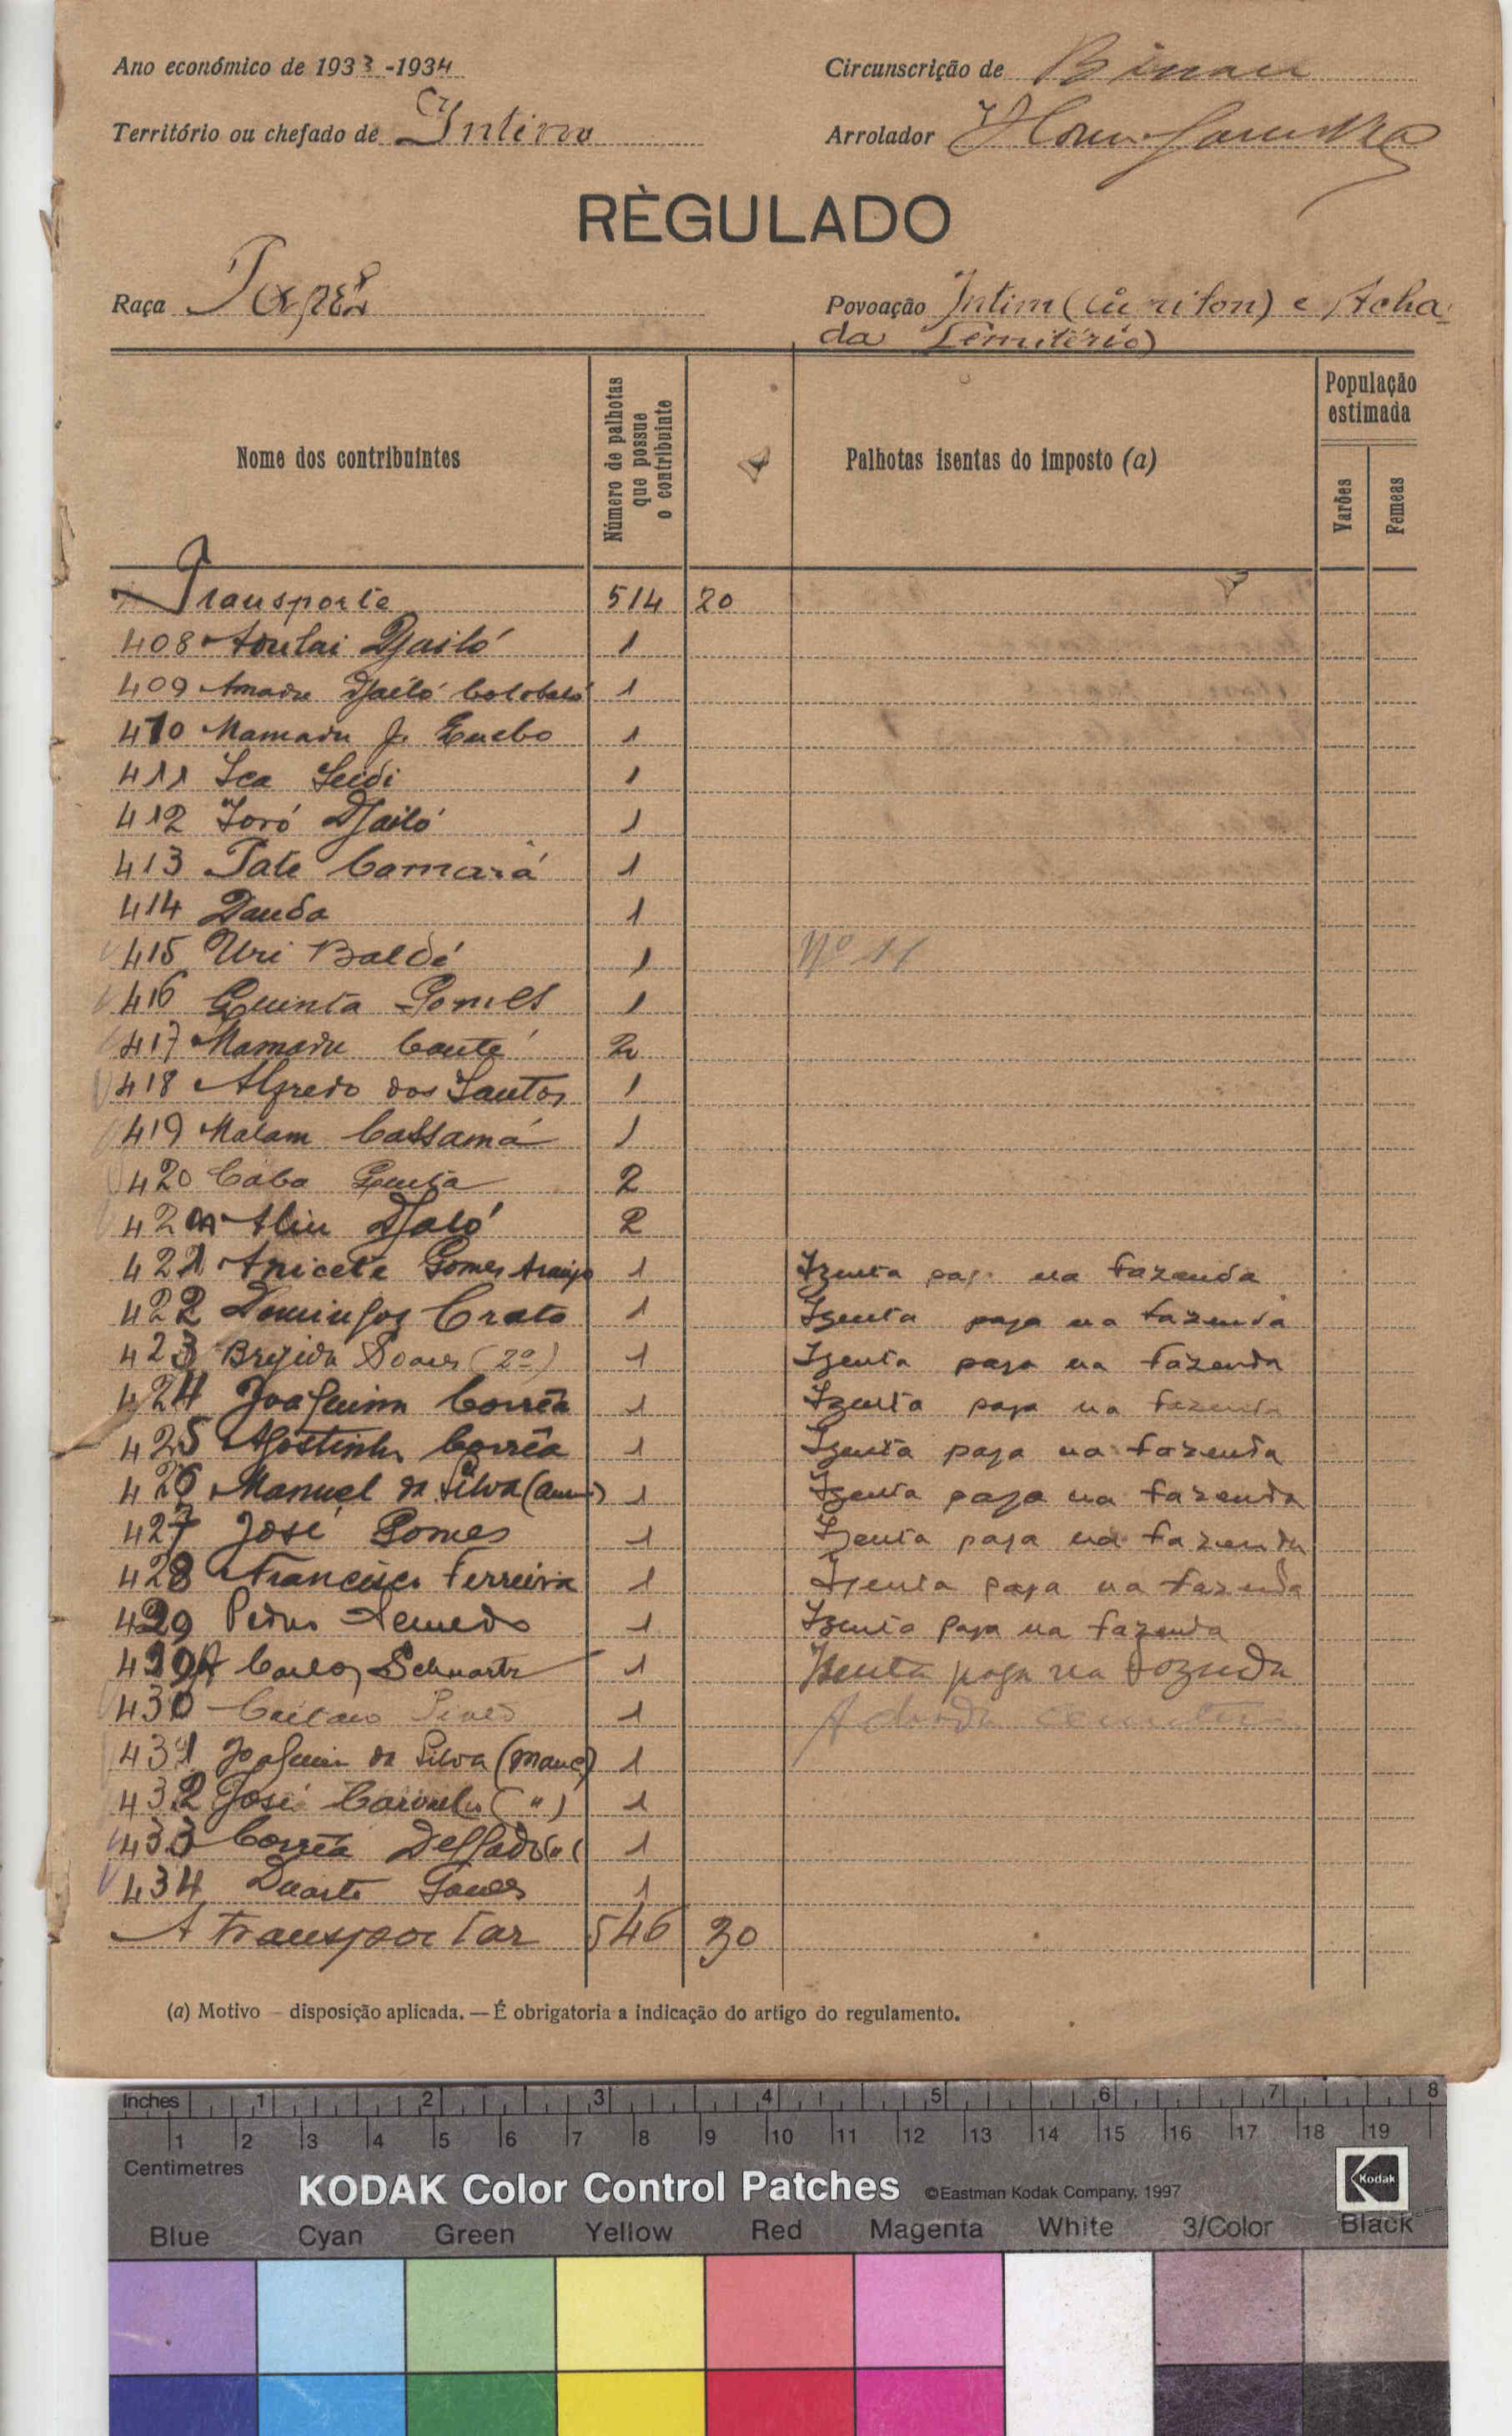 Ano económico de 1933-1934
Circunscrição de Bissau
Território ou chefado de Intim
Arrolador
RÈGULADO
Raça Papel
Povoação Intim (Cúriton) e Acha-
da Cemitério)
Nome dos contribuintes
Número de palhotas que possue o contribuinte
Palhotas isentas do imposto (a)
População estimada
Varões
Femeas
Transporte 514 20
408 Aoulai Djaló 1
409 Amadu Djaló 1
410 Mamadu J. 1
411 Ica Seidi 1
412 Ioró Djaló 1
413 Pate Camará 1
414 Dauda 1
415 Uri Baldé 1 Nº 11
416 Quinta Gomes 1
417 Mamadu Conté 2
418 Alfredo dos Santos 1
419 Malam Cassamá 1
420 Caba 2
420A Aliu Djaló 2
421 Anicete Gomes Araujo 1 Izenta paga na fazenda
422 Domingos Crato 1 Izenta paga na fazenda
423 Brigida Soares (2ª) 1 Izenta paga na fazenda
424 Joaquim Corrêa 1 Izenta paga na fazenda
425 Agostinho Corrêa 1 Izenta paga na fazenda
426 Manuel da Silva 1 Izenta paga na fazenda
427 José Gomes 1 Izenta paga na fazenda
428 Francisco Ferreira 1 Izenta paga na fazenda
429 Pedro Semedo 1 Izenta paga na fazenda
429A Carlos Schwartz 1 Izenta paga na fazenda
430 Caetano 1 Achada
431 Joaquim da Silva (manc) 1
432 José Carvalho (") 1
433 Corrêa Delgado (") 1
434 Duarte Gomes 1
A transportar 546 20
(a) Motivo — disposição aplicada. — É obrigatoria a indicação do artigo do regulamento.
Inches 1 2 3 4 5 6 7 8
1 2 3 4 5 6 7 8 9 10 11 12 13 14 15 16 17 18 19
Centimetres
KODAK Color Control Patches ©Eastman Kodak Company, 1997 Kodak
Blue Cyan Green Yellow Red Magenta White 3/Color Black